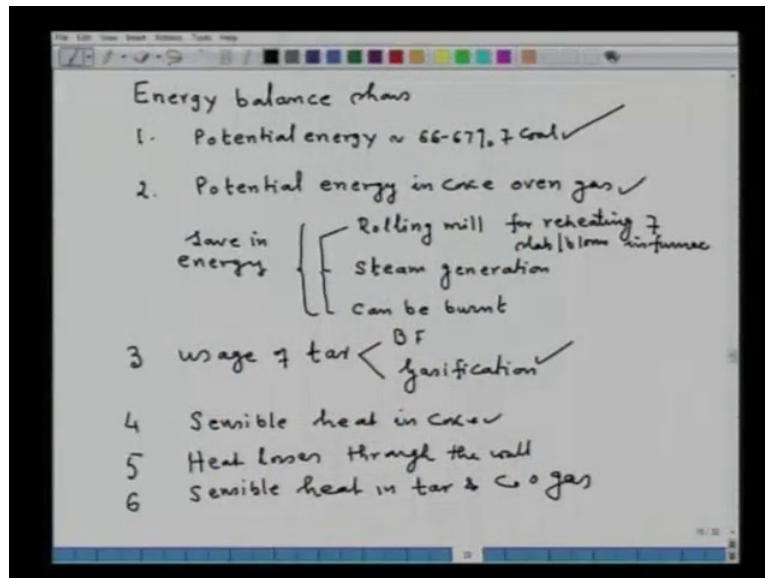 File Edit View Insert Actions Tools Help
Energy balance shows
1. Potential energy ~ 66-67% of Coal
2. Potential energy in coke oven gas
Save in energy
Rolling mill for reheating of slab/bloom in furnace
Steam generation
Can be burnt
3 usage of tar
BF
Gasification
4 Sensible heat in coke
5 Heat losses through the wall
6 Sensible heat in tar & C. O gas